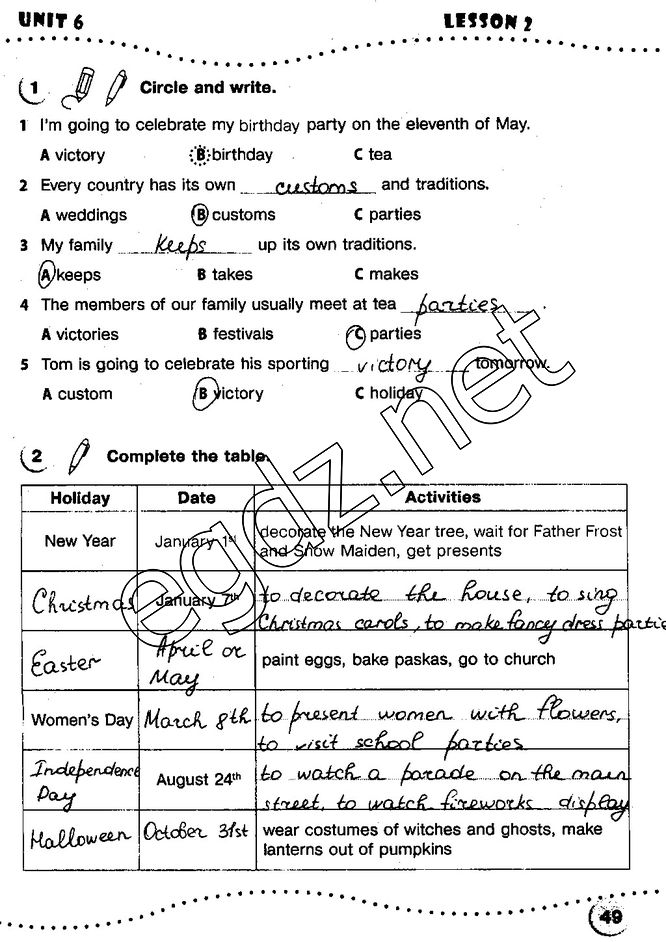 UNIT 6 LESSON 2
1 Circle and write.
1 I'm going to celebrate my birthday party on the eleventh of May.
A victory B birthday C tea
2 Every country has its own customs and traditions.
A weddings B customs C parties
3 My family keeps up its own traditions.
A keeps B takes C makes
4 The members of our family usually meet at tea parties.
A victories B festivals C parties
5 Tom is going to celebrate his sporting victory tomorrow.
A custom B victory C holiday
2 Complete the table.
Holiday Date Activities
New Year January 1st decorate the New Year tree, wait for Father Frost
and Snow Maiden, get presents
Christmas January 7th to decorate the house, to sing
Christmas carols, to make fancy dress partie
Easter April or May paint eggs, bake paskas, go to church
Women's Day March 8th to present women with flowers,
to visit school parties
Independence Day August 24th to watch a parade on the main
street, to watch fireworks display
Halloween October 31st wear costumes of witches and ghosts, make
lanterns out of pumpkins
49
egdz.net